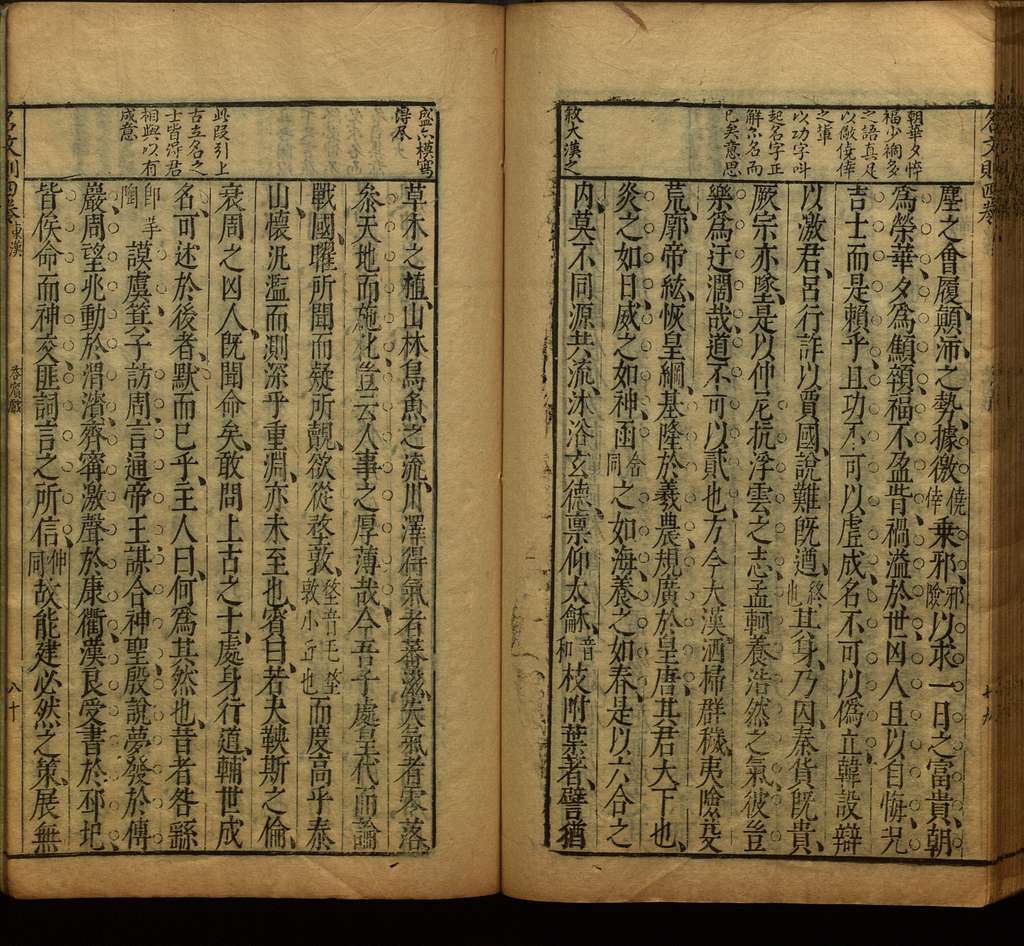 名文則四卷
朝華夕悴
福少禍多
之語真足
以儆僥倖
之輩
以功字叫
起名字正
解尔名而
已矣意思
敘大漢之
塵之會履顛沛之勢據徼僥倖乘邪邪險以求一日之富貴朝
為榮華夕為顦顇福不盈眥禍溢於世凶人且以自悔况
吉士而是賴乎且功不可以虗成名不可以偽立韓設辯
以激君呂行詐以賈國說難既遒終也其身乃囚秦貨既貴
厥宗亦墜是以仲尼抗浮雲之志孟軻養浩然之氣彼豈
樂為迂濶哉道不可以貳也方今大漢洒掃群穢夷險芟
荒廓帝紘恢皇綱基隆於羲農規廣於皇唐其君天下也
炎之如日威之如神函含同之如海養之如春是以六合之
內莫不同源共流沐浴玄德禀仰太龢音和枝附葉著譬猶
盛亦模寫
得尽
此段引上
古立名之
士皆得君
相與以有
成意
草木之植山林鳥魚之流川澤得氣者蕃滋失氣者零落
叅天地而施化豈云人事之厚薄哉今吾子處皇代而論
戰國曜所聞而疑所覿欲從堥敦堥音毛堥敦小丘也而度高乎泰
山懷氿濫而測深乎重淵亦未至也賓曰若夫鞅斯之倫
衰周之凶人既聞命矣敢問上古之士處身行道輔世成
名可述於後者默而已乎主人曰何為其然也昔者咎繇
即皐陶謨虞箕子訪周言通帝王謀合神聖殷說夢發於傅
巖周望兆動於渭濱齊甯激聲於康衢漢良受書於邳圯
皆俟命而神交匪詞言之所信伸同故能建必然之策展無
名文則四卷 東漢
答賓戲
八十